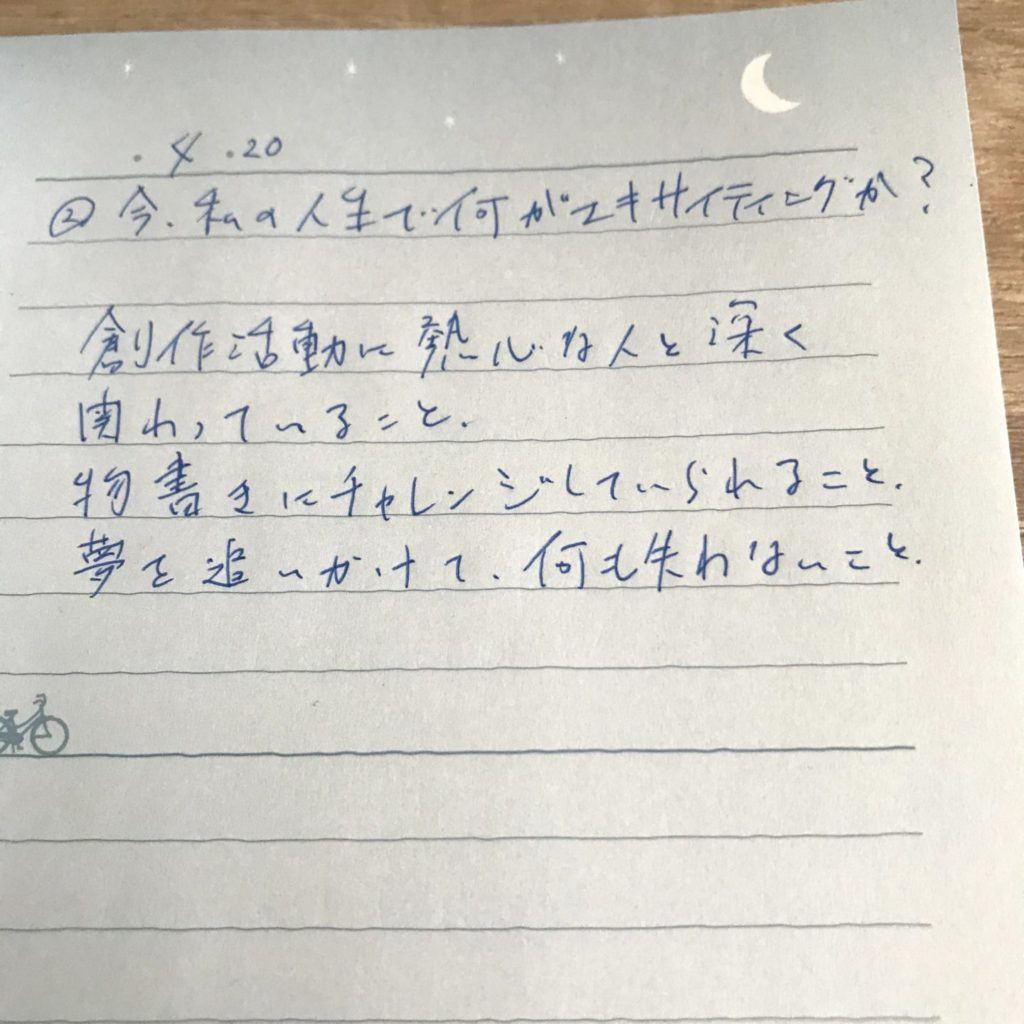 . 4 .20
② 今、私の人生で何がエキサイティングか?
創作活動に熱心な人と深く
関わっていること.
物書きにチャレンジしていられること.
夢を追いかけて、何も失わないこと.